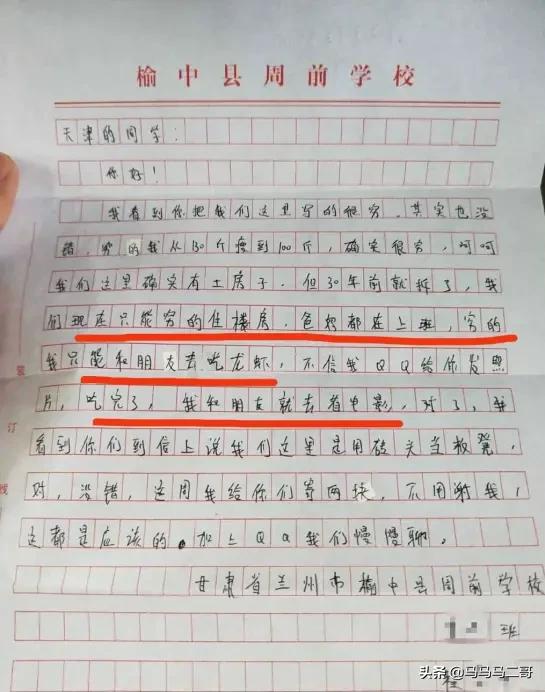 榆中县周前学校
天津的同学：
你好！
我看到你把我们这里写的很穷，其实也没
错，穷的我从130斤瘦到100斤，确实很穷，呵呵
我们这里确实有土房子，但30年前就拆了，我
们现在只能穷的住楼房，爸妈都在上班，穷的
我只能和朋友去吃龙虾，不信我QQ给你发照
片，吃完了，我和朋友就去看电影，对了，我
看到你们到信上说我们这里是用砖头当板凳，
对，没错，这周我给你们寄两块，不用谢我，
这都是应该的。加上QQ我们慢慢聊。
甘肃省兰州市榆中县周前学校
班
装
订
线
头条 @马马马二哥